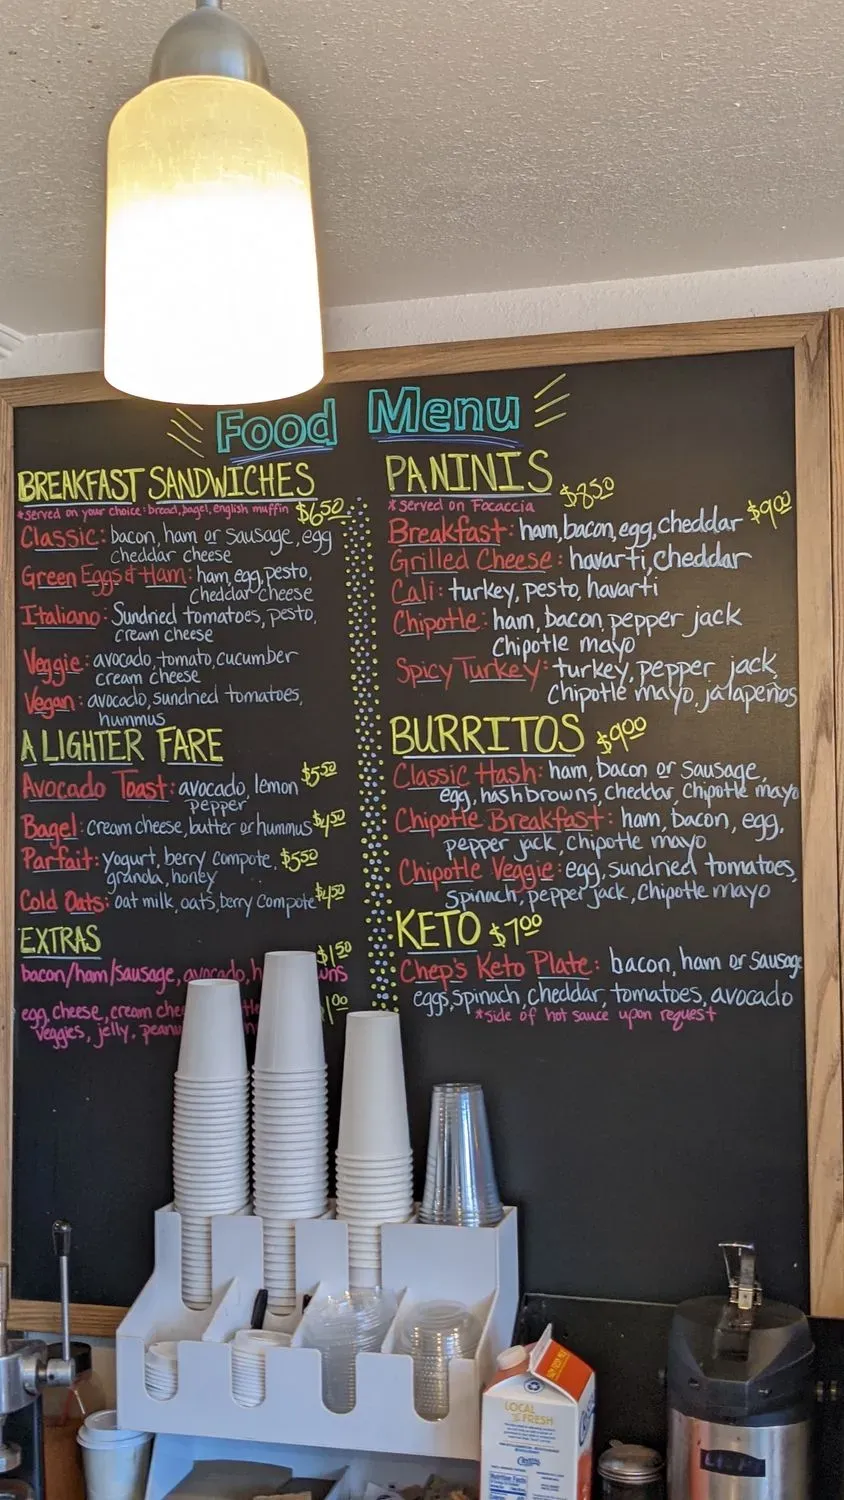 Food Menu
BREAKFAST SANDWICHES
*served on your choice: bread, bagel, english muffin $6.50
Classic: bacon, ham or sausage, egg
cheddar cheese
Green Eggs & Ham: ham, egg, pesto,
cheddar cheese
Italiano: Sundried tomatoes, pesto,
cream cheese
Veggie: avocado, tomato, cucumber
cream cheese
Vegan: avocado, sundried tomatoes,
hummus
A LIGHTER FARE
Avocado Toast: avocado, lemon $5.50
pepper
Bagel: cream cheese, butter or hummus $4.50
Parfait: yogurt, berry compote, $5.50
granola, honey
Cold Oats: oat milk, oats, berry compote $4.50
EXTRAS
$1.50
bacon/ham/sausage, avocado,
egg, cheese, cream
veggies, jelly,
PANINIS $8.50
*served on Focaccia
Breakfast: ham, bacon, egg, cheddar $9.00
Grilled Cheese: havarti, cheddar
Cali: turkey, pesto, havarti
Chipotle: ham, bacon, pepper jack
Chipotle mayo
Spicy Turkey: turkey, pepper jack
Chipotle mayo, jalapeños
BURRITOS $9.00
Classic Hash: ham, bacon or sausage,
egg, hashbrowns, cheddar, chipotle mayo
Chipotle Breakfast: ham, bacon, egg,
pepper jack, chipotle mayo
Chipotle Veggie: egg, sundried tomatoes,
spinach, pepper jack, chipotle mayo
KETO $7.00
Chep's Keto Plate: bacon, ham or sausage
eggs, spinach, cheddar, tomatoes, avocado
*side of hot sauce upon request
LOCAL
FRESH
Nutrition Facts